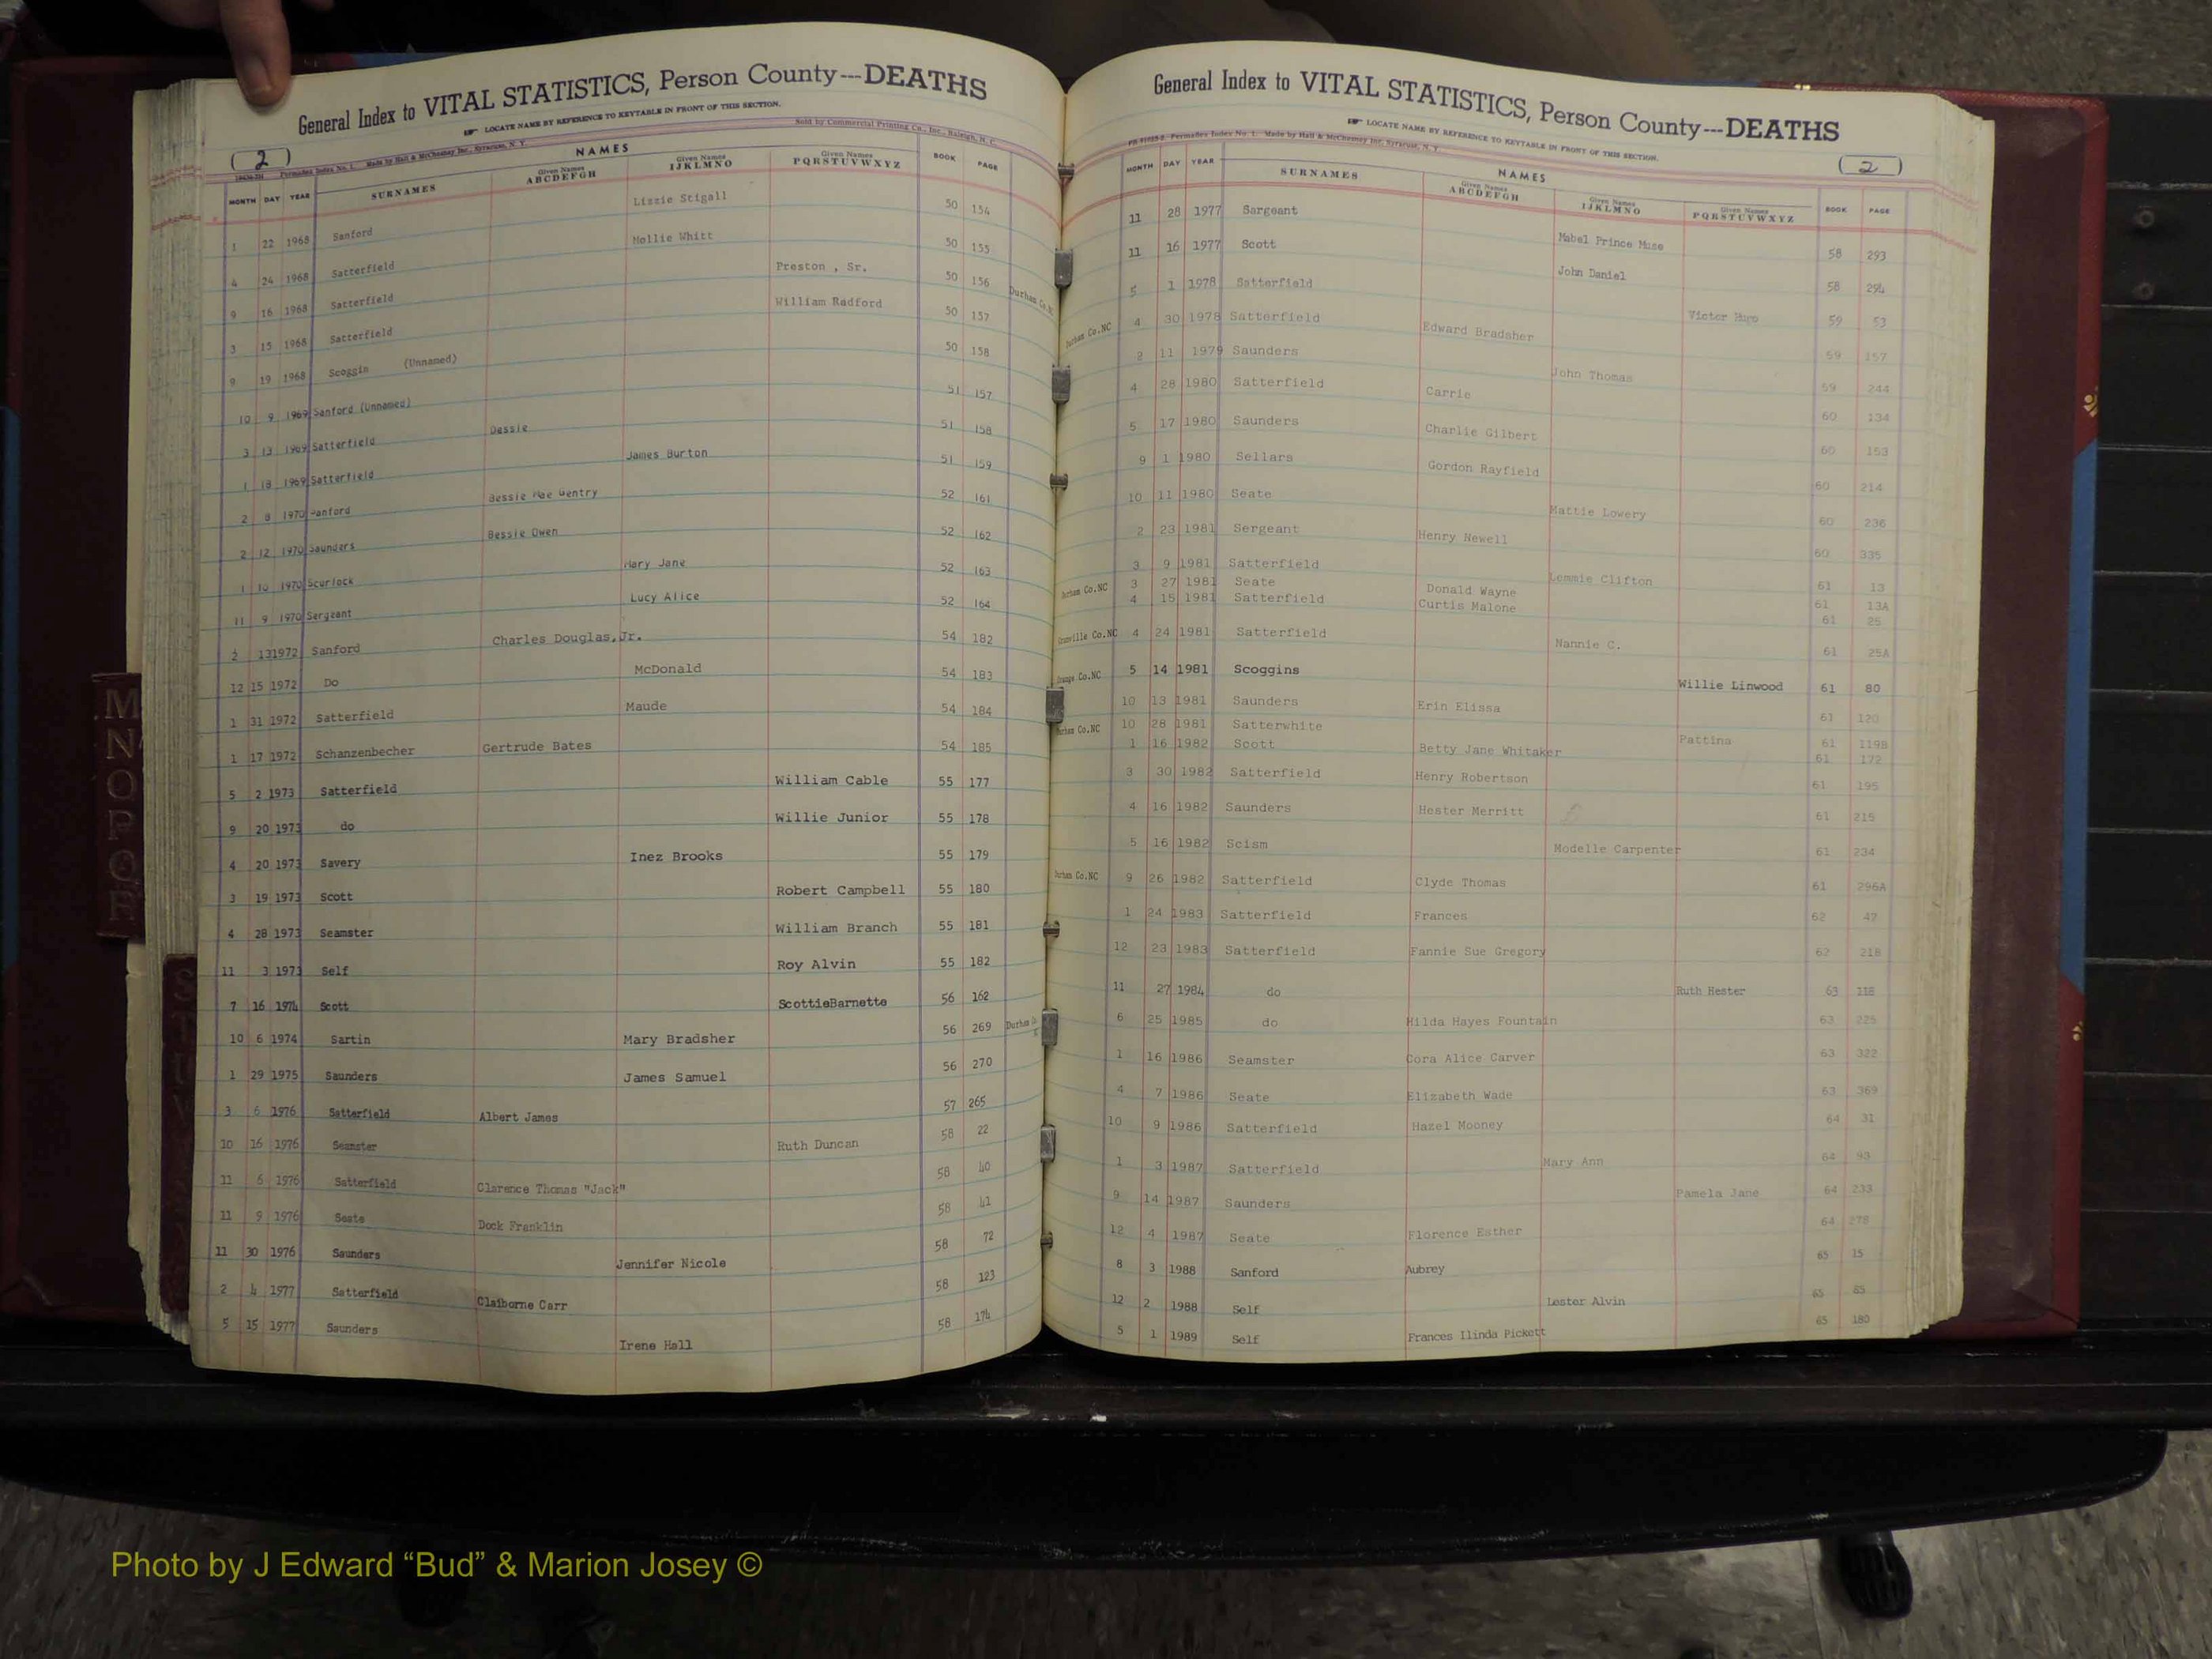 General Index to VITAL STATISTICS, Person County---DEATHS
LOCATE NAME BY REFERENCE TO KEYTABLE IN FRONT OF THIS SECTION.
Sold by Commercial Printing Co., Inc., Raleigh, N. C.
(2) Permadex Index No. 1. Made by Hall & McChesney Inc., Syracuse, N. Y.
NAMES
MONTH DAY YEAR SURNAMES Given Names ABCDEFGH Given Names IJKLMNO Given Names PQRSTUVWXYZ BOOK PAGE
1 22 1968 Sanford Lizzie Stigall 50 154
4 24 1968 Satterfield Mollie Whitt 50 155
9 16 1968 Satterfield Preston , Sr. 50 156 Durham Co.N
3 15 1968 Satterfield William Radford 50 157
9 19 1968 Scoggin (Unnamed) 50 158
10 9 1969 Sanford (Unnamed) 51 157
3 13 1969 Satterfield Dessie 51 158
1 18 1969 Satterfield James Burton 51 159
2 8 1970 Sanford Bessie Mae Gentry 52 161
2 12 1970 Saunders Bessie Owen 52 162
1 10 1970 Scurlock Mary Jane 52 163
11 9 1970 Sergeant Lucy Alice 52 164
2 13 1972 Sanford Charles Douglas,Jr. 54 182
12 15 1972 Do McDonald 54 183
1 31 1972 Satterfield Maude 54 184
1 17 1972 Schanzenbecher Gertrude Bates 54 185
5 2 1973 Satterfield William Cable 55 177
9 20 1973 do Willie Junior 55 178
4 20 1973 Savery Inez Brooks 55 179
3 19 1973 Scott Robert Campbell 55 180
4 28 1973 Seamster William Branch 55 181
11 3 1973 Self Roy Alvin 55 182
7 16 1974 Scott ScottieBarnette 56 162
10 6 1974 Sartin Mary Bradsher 56 269 Durham Co.
1 29 1975 Saunders James Samuel 56 270
3 6 1976 Satterfield Albert James 57 265
10 16 1976 Seamster Ruth Duncan 58 22
11 6 1976 Satterfield Clarence Thomas "Jack" 58 40
11 9 1976 Seate Dock Franklin 58 41
11 30 1976 Saunders Jennifer Nicole 58 72
2 4 1977 Satterfield Claiborne Carr 58 123
5 15 1977 Saunders Irene Hall 58 174
General Index to VITAL STATISTICS, Person County---DEATHS
LOCATE NAME BY REFERENCE TO KEYTABLE IN FRONT OF THIS SECTION.
Permadex Index No. 1. Made by Hall & McChesney Inc. Syracuse, N. Y.
(2)
NAMES
MONTH DAY YEAR SURNAMES Given Names ABCDEFGH Given Names IJKLMNO Given Names PQRSTUVWXYZ BOOK PAGE
11 28 1977 Sargeant Mabel Prince Muse 58 293
11 16 1977 Scott John Daniel 58 294
5 1 1978 Satterfield Victor Hugo 59 53
Durham Co.NC 4 30 1978 Satterfield Edward Bradsher 59 157
2 11 1979 Saunders John Thomas 59 244
4 28 1980 Satterfield Carrie 60 134
5 17 1980 Saunders Charlie Gilbert 60 153
9 1 1980 Sellars Gordon Rayfield 60 214
10 11 1980 Seate Mattie Lowery 60 236
2 23 1981 Sergeant Henry Newell 60 335
3 9 1981 Satterfield Lemmie Clifton 61 13
Durham Co.NC 3 27 1981 Seate Donald Wayne 61 13A
4 15 1981 Satterfield Curtis Malone 61 25
Granville Co.NC 4 24 1981 Satterfield Nannie C. 61 25A
Orange Co.NC 5 14 1981 Scoggins Willie Linwood 61 80
10 13 1981 Saunders Erin Elissa 61 120
Durham Co.NC 10 28 1981 Satterwhite Pattina 61 119B
1 16 1982 Scott Betty Jane Whitaker 61 172
3 30 1982 Satterfield Henry Robertson 61 195
4 16 1982 Saunders Hester Merritt 61 215
5 16 1982 Scism Modelle Carpenter 61 234
Durham Co.NC 9 26 1982 Satterfield Clyde Thomas 61 296A
1 24 1983 Satterfield Frances 62 47
12 23 1983 Satterfield Fannie Sue Gregory 62 218
11 27 1984 do Ruth Hester 63 118
6 25 1985 do Hilda Hayes Fountain 63 225
1 16 1986 Seamster Cora Alice Carver 63 322
4 7 1986 Seate Elizabeth Wade 63 369
10 9 1986 Satterfield Hazel Mooney 64 31
1 3 1987 Satterfield Mary Ann 64 93
9 14 1987 Saunders Pamela Jane 64 233
12 4 1987 Seate Florence Esther 64 278
8 3 1988 Sanford Aubrey 65 15
12 2 1988 Self Lester Alvin 65 65
5 1 1989 Self Frances Ilinda Pickett 65 180
M
N
O
P
Q
R
S
T
Photo by J Edward “Bud” & Marion Josey ©